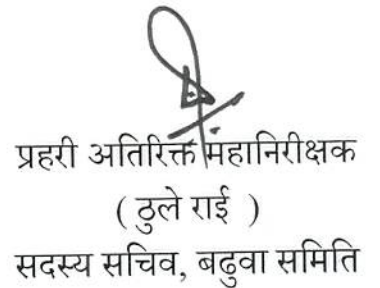 प्रहरी अतिरिक्त महानिरीक्षक
( ठुले राई )
सदस्य सचिव, बढुवा समिति